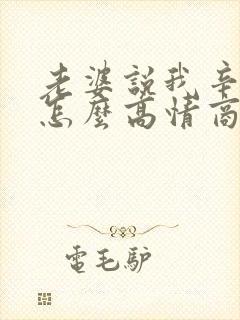 老婆說我辛
怎麼高情商
電毛驴